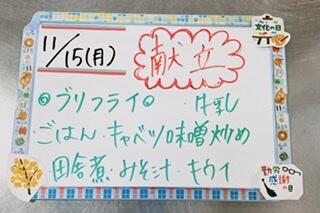 文化の日
11/15(月) 献立
◎ブリフライ◎ ・牛乳
・ごはん・キャベツの味噌炒め
・田舎煮・みそ汁・キウイ
勤労感謝の日